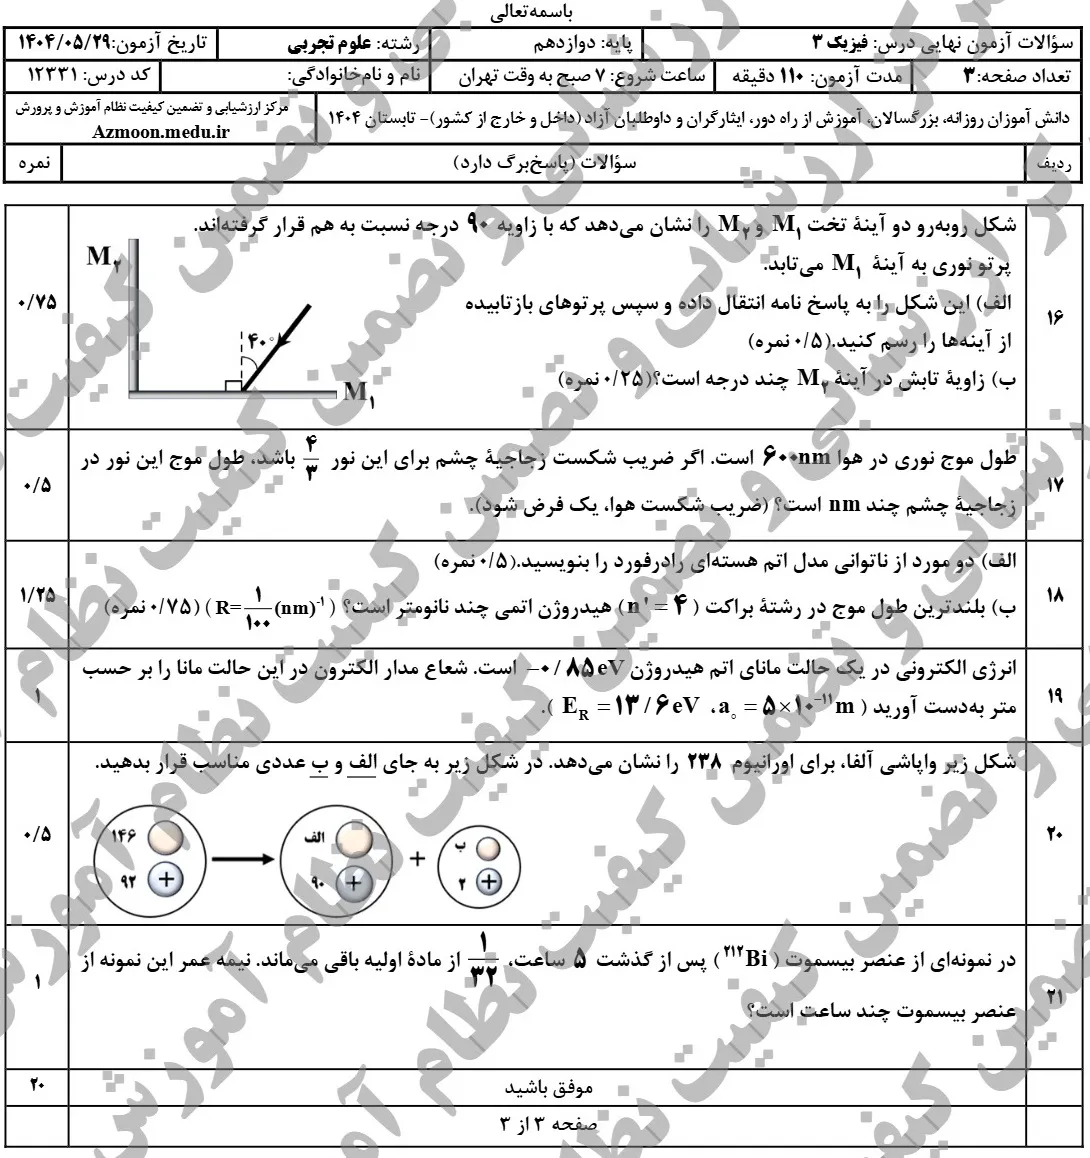 باسمه‌تعالی
سؤالات آزمون نهایی درس: فیزیک ۳ پایه: دوازدهم رشته: علوم تجربی تاریخ آزمون:۱۴۰۴/۰۵/۲۹
تعداد صفحه:۳ مدت آزمون: ۱۱۰ دقیقه ساعت شروع: ۷ صبح به وقت تهران نام و نام‌خانوادگی: کد درس: ۱۲۳۳۱
دانش آموزان روزانه، بزرگسالان، آموزش از راه دور، ایثارگران و داوطلبان آزاد (داخل و خارج از کشور)- تابستان ۱۴۰۴ مرکز ارزشیابی و تضمین کیفیت نظام آموزش و پرورش
Azmoon.medu.ir
ردیف سؤالات (پاسخ‌برگ دارد) نمره
۱۶ شکل روبه‌رو دو آینهٔ تخت M۱ و M۲ را نشان می‌دهد که با زاویه ۹۰ درجه نسبت به هم قرار گرفته‌اند.
پرتو نوری به آینهٔ M۱ می‌تابد.
الف) این شکل را به پاسخ نامه انتقال داده و سپس پرتوهای بازتابیده
از آینه‌ها را رسم کنید.(۰/۵ نمره)
ب) زاویهٔ تابش در آینهٔ M۲ چند درجه است؟(۰/۲۵ نمره)
۰/۷۵
M۲
۴۰°
M۱
۱۷ طول موج نوری در هوا ۶۰۰nm است. اگر ضریب شکست زجاجیهٔ چشم برای این نور ۴/۳ باشد، طول موج این نور در
زجاجیهٔ چشم چند nm است؟ (ضریب شکست هوا، یک فرض شود).
۰/۵
۱۸ الف) دو مورد از ناتوانی مدل اتم هسته‌ای رادرفورد را بنویسید.(۰/۵ نمره)
ب) بلندترین طول موج در رشتهٔ براکت (n' = ۴) هیدروژن اتمی چند نانومتر است؟ (R=۱/۱۰۰(nm)⁻¹) (۰/۷۵ نمره)
۱/۲۵
۱۹ انرژی الکترونی در یک حالت مانای اتم هیدروژن −۰/۸۵eV است. شعاع مدار الکترون در این حالت مانا را بر حسب
متر به‌دست آورید (a۰ = ۵×۱۰⁻¹¹m ، ER = ۱۳/۶eV).
۱
۲۰ شکل زیر واپاشی آلفا، برای اورانیوم ۲۳۸ را نشان می‌دهد. در شکل زیر به جای الف و ب عددی مناسب قرار بدهید.
۰/۵
۱۴۶ الف ب
۹۲ + ۹۰ + + ۲ +
۲۱ در نمونه‌ای از عنصر بیسموت (²¹²Bi) پس از گذشت ۵ ساعت، ۱/۳۲ از مادهٔ اولیه باقی می‌ماند. نیمه عمر این نمونه از
عنصر بیسموت چند ساعت است؟
۱
موفق باشید ۲۰
صفحه ۳ از ۳
مرکز ارزشیابی و تضمین کیفیت نظام آموزش